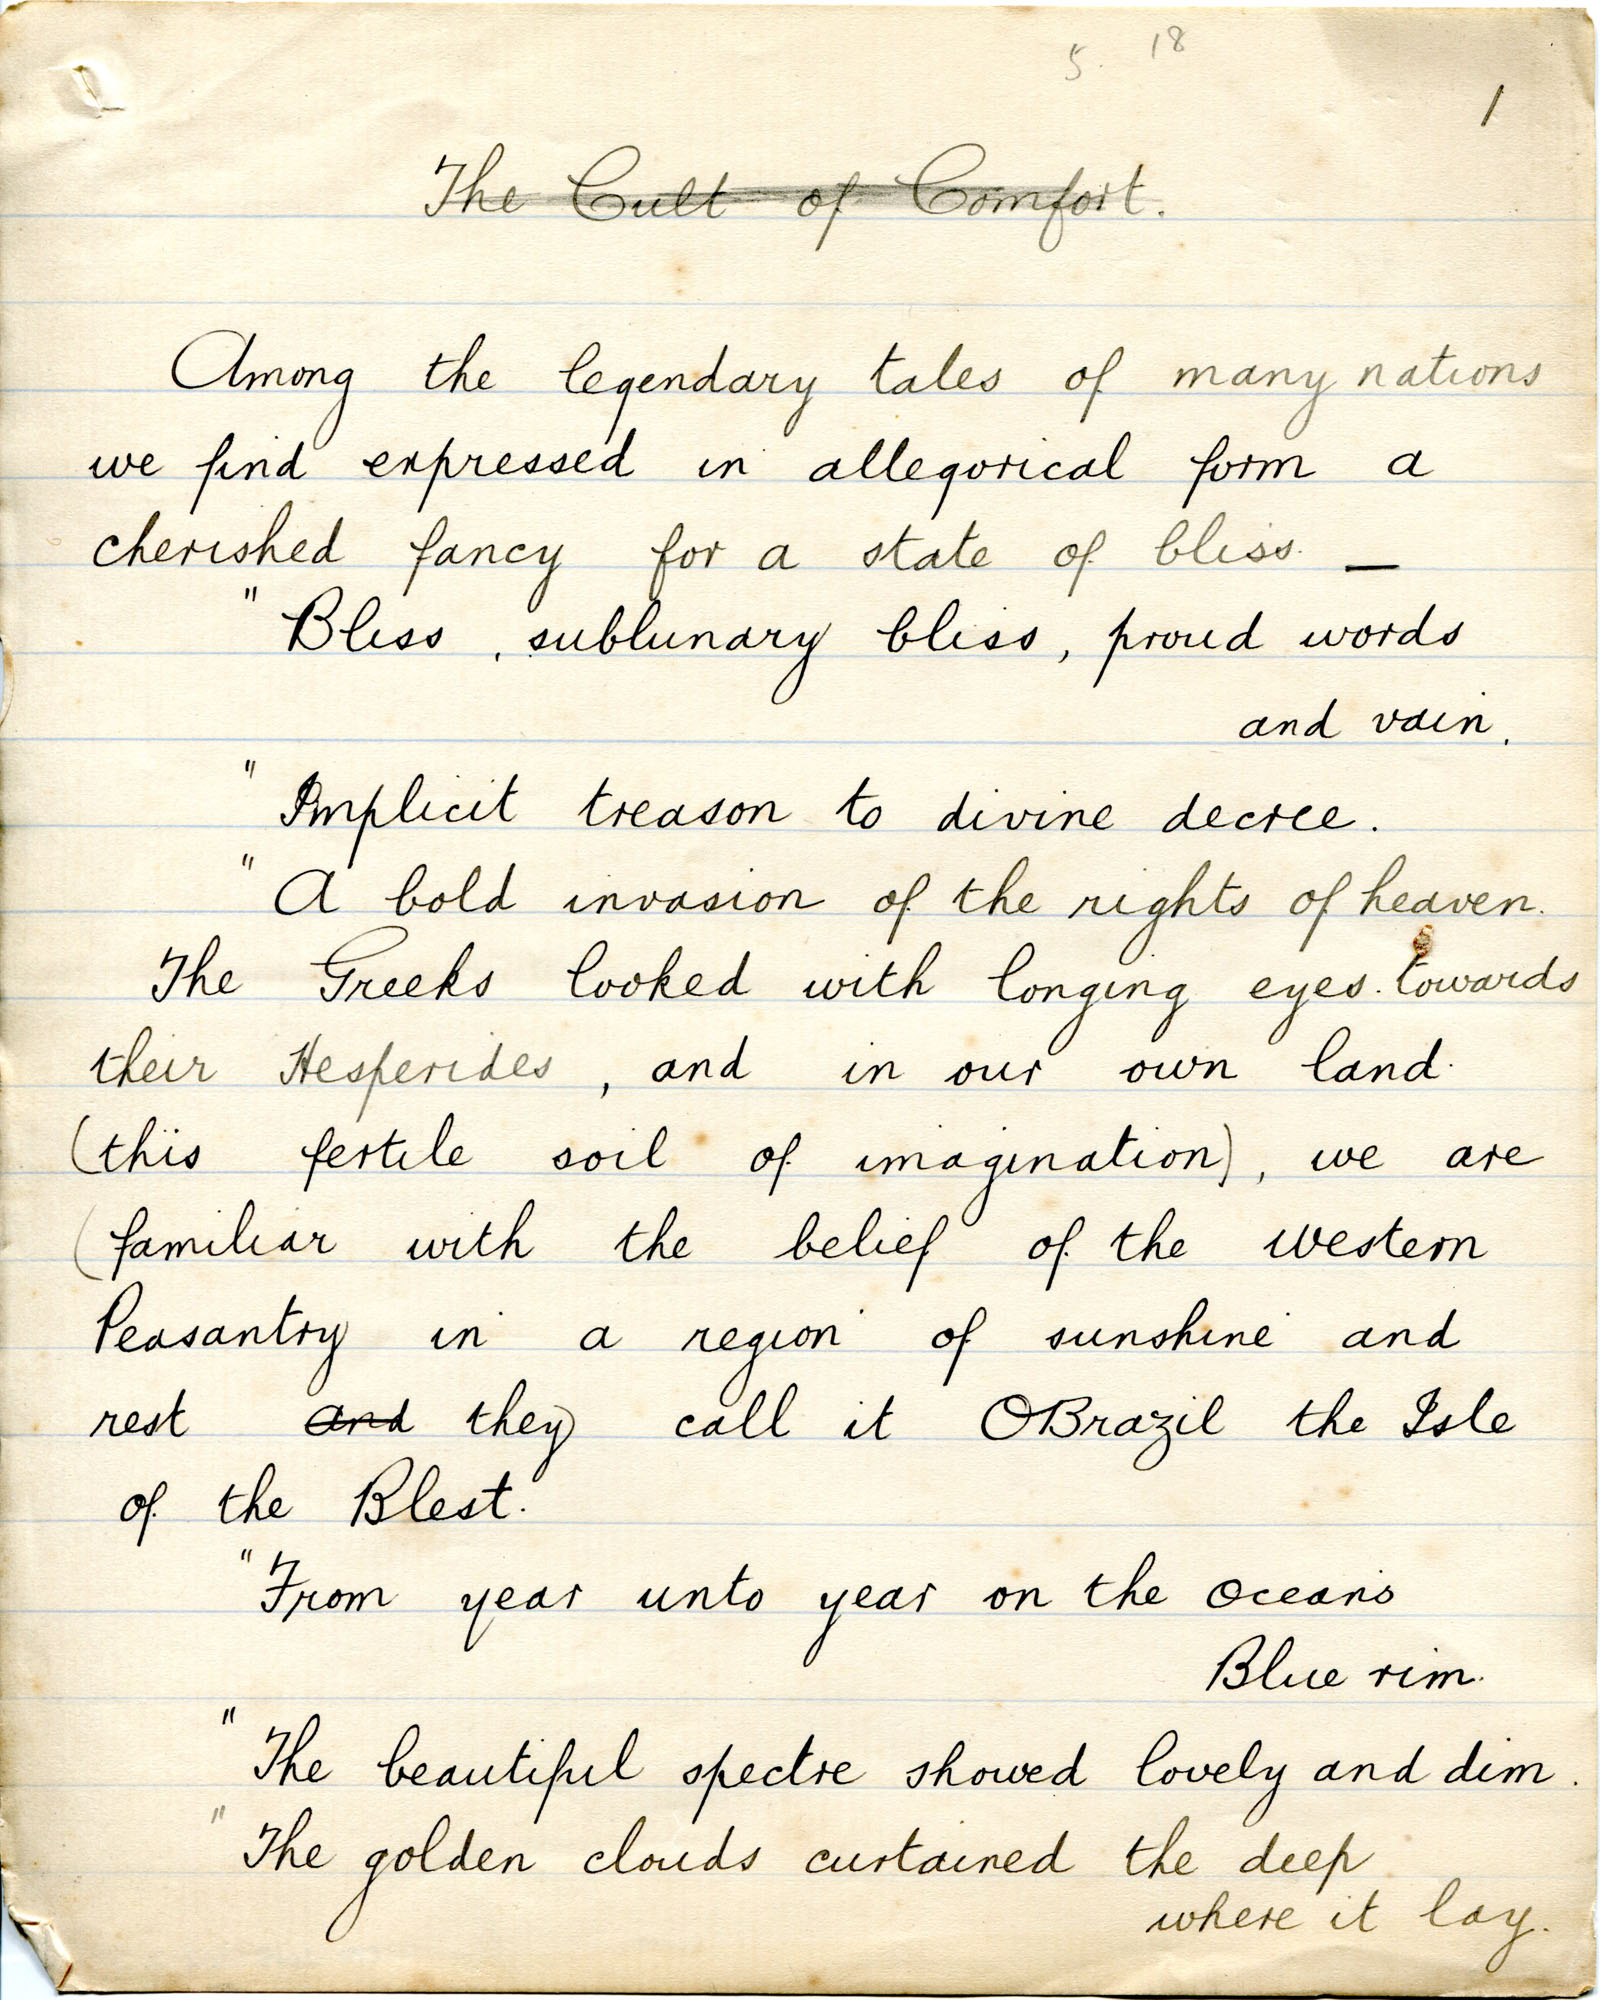 5. 18
1
The Cult of Comfort.
Among the legendary tales of many nations
we find expressed in allegorical form a
cherished fancy for a state of bliss. —
" Bliss , sublunary bliss, proud words
and vain.
" Implicit treason to divine decree.
" A bold invasion of the rights of heaven.
The Greeks looked with longing eyes. towards
their Hesperides , and in our own land.
(this fertile soil of imagination), we are
(familiar with the belief of the Western
Peasantry in a region of sunshine and
rest and they call it OBrazil the Isle
of the Blest.
"From year unto year on the Ocean's
Blue rim.
" The beautiful spectre showed lovely and dim.
" The golden clouds curtained the deep
where it lay.